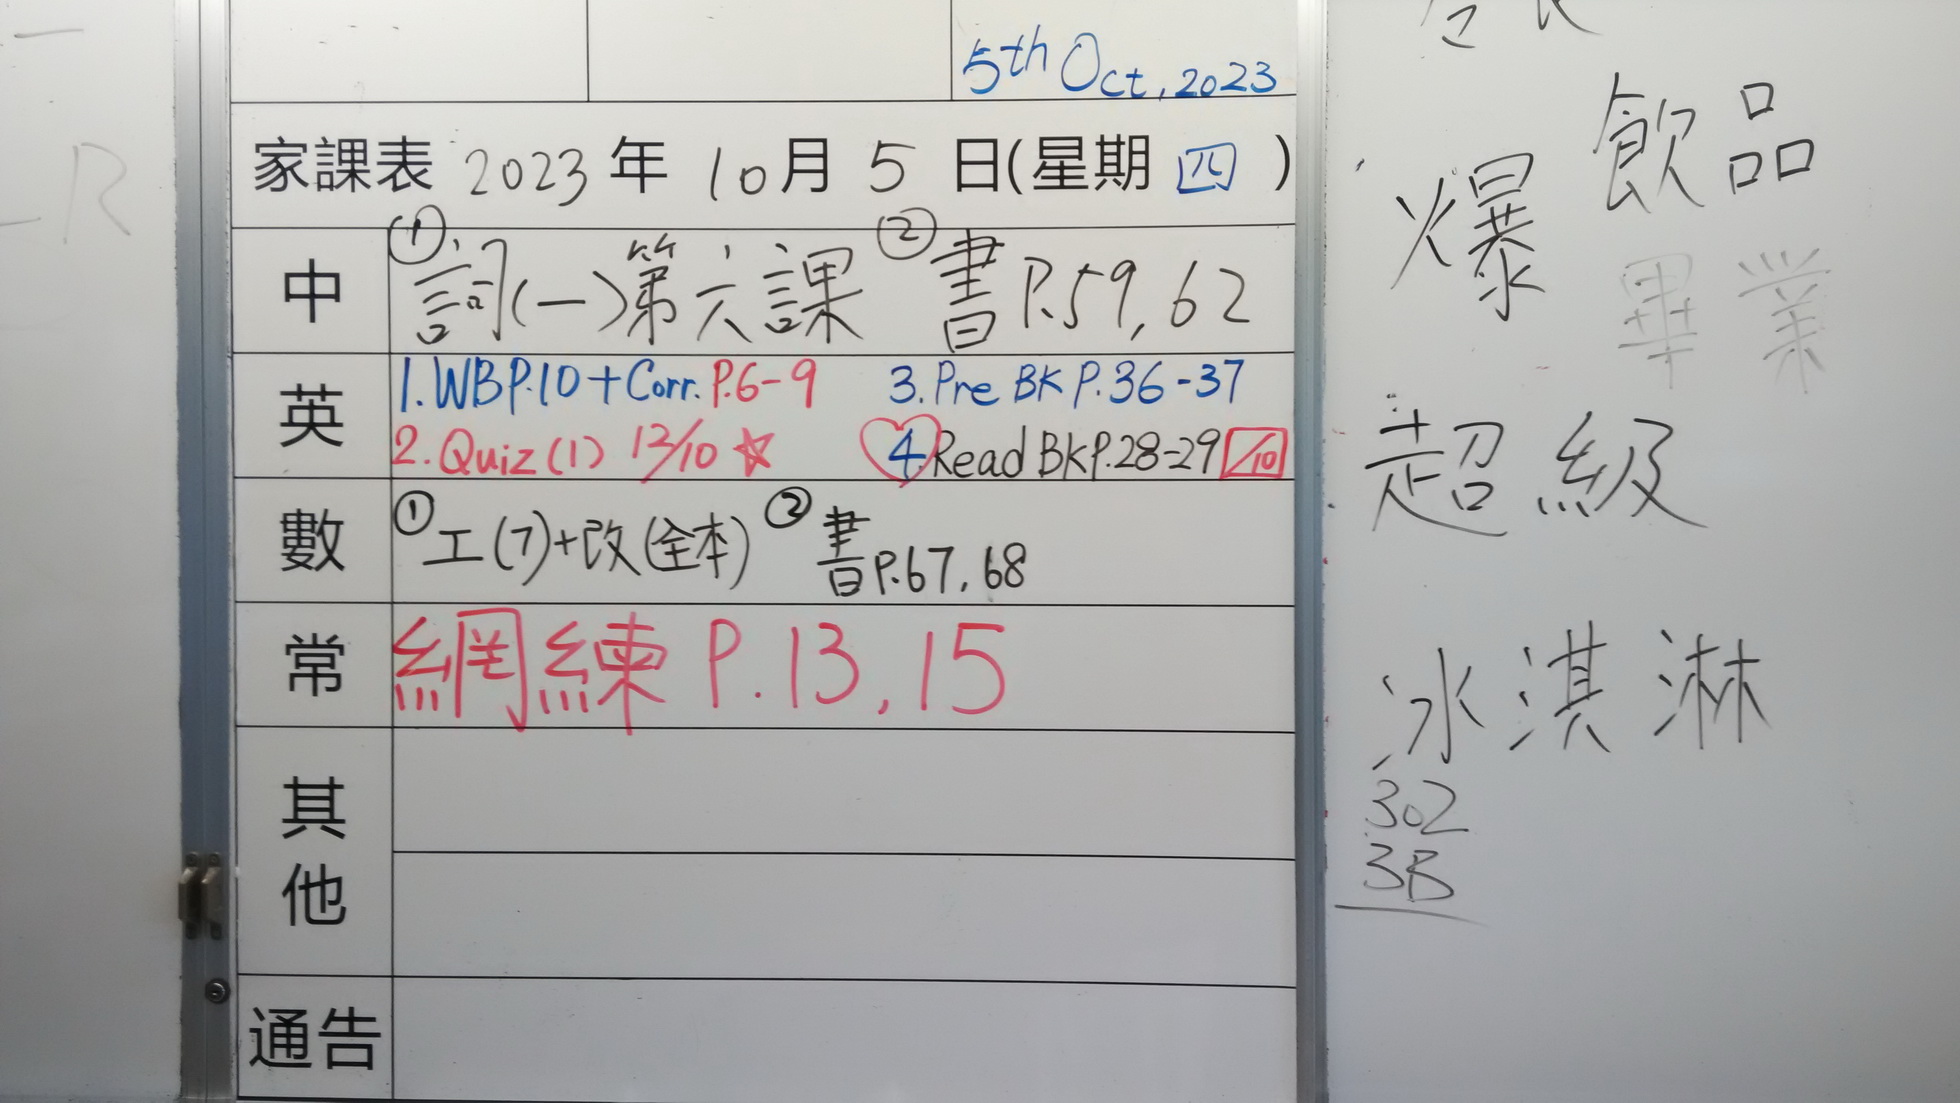 5th Oct, 2023
家課表 2023 年 10 月 5 日(星期 四 )
中 ① 詞(一)第六課 ② 書 P.59, 62
英 1. WB P.10 + Corr. P.6-9 3. Pre BK P. 36-37
2. Quiz (1) 12/10 ☆ 4. Read BK P.28-29 /10
數 ① 工(7)+改(全本) ② 書 P.67, 68
常 網練 P. 13, 15
其他
通告
飲品
爆
畢業
超級
冰淇淋
302
3B
R